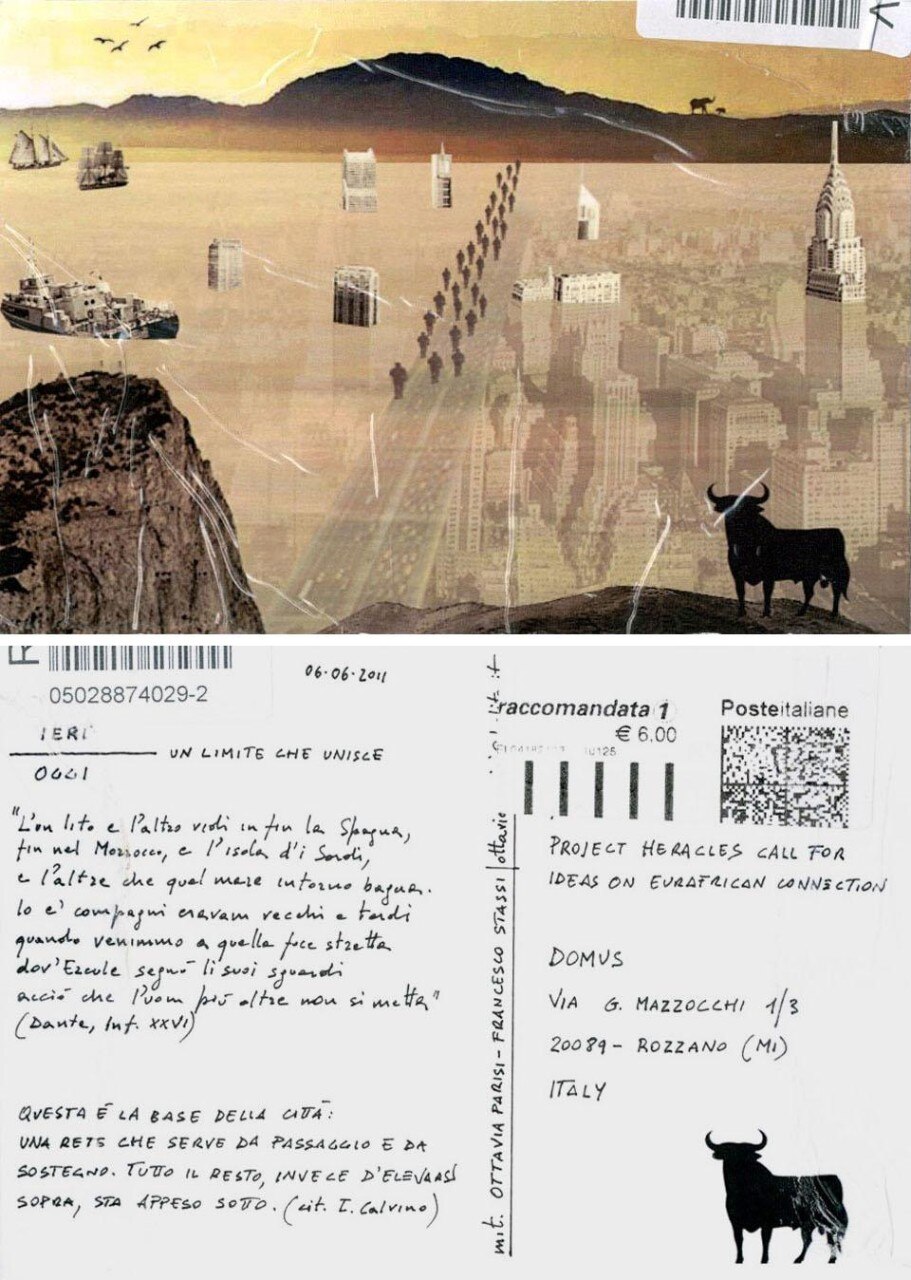 05028874029-2
06-06-2011
IERI
OGGI
UN LIMITE CHE UNISCE
"L'un lito e l'altro vidi in fin la Spagna,
fin nel Morrocco, e l'isola d'i Sardi,
e l'altre che quel mare intorno bagna.
Io e' compagni eravam vecchi e tardi
quando venimmo a quella foce stretta
dov'Ercule segnò li suoi sguardi
acciò che l'uom più oltre non si metta"
(Dante, Inf. XXVI)
QUESTA È LA BASE DELLA CITTÀ:
UNA RETE CHE SERVE DA PASSAGGIO E DA
SOSTEGNO. TUTTO IL RESTO, INVECE D'ELEVARSI
SOPRA, STA APPESO SOTTO. (cit. I. Calvino)
mit. OTTAVIA PARISI - FRANCESCO STASSI
raccomandata 1
€ 6.00
Posteitaliane
PROJECT HERACLES CALL FOR
IDEAS ON EURAFRICAN CONNECTION
DOMUS
VIA G. MAZZOCCHI 1/3
20089 - ROZZANO (MI)
ITALY